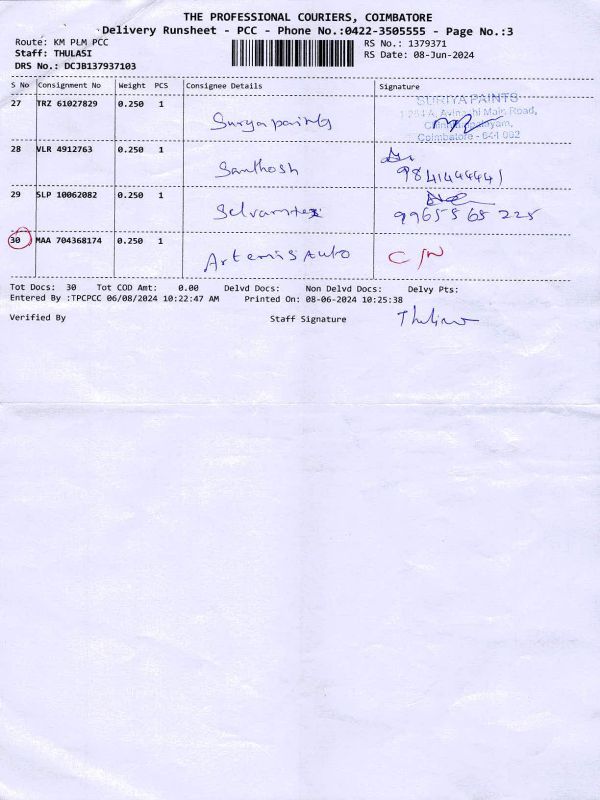 THE PROFESSIONAL COURIERS, COIMBATORE
Delivery Runsheet - PCC - Phone No.:0422-3505555 - Page No.:3
Route: KM PLM PCC
Staff: THULASI
DRS No.: DCJB137937103
RS No.: 1379371
RS Date: 08-Jun-2024
S No Consignment No Weight PCS Consignee Details Signature
27 TRZ 61027829 0.250 1 Surya paints
SURIYA PAINTS
Coimbatore - 641 062
28 VLR 4912763 0.250 1 Santhosh
29 SLP 10062082 0.250 1
99655 65 225
30 MAA 704368174 0.250 1 Artemis Auto C/N
Tot Docs: 30 Tot COD Amt: 0.00 Delvd Docs: Non Delvd Docs: Delvy Pts:
Entered By :TPCPCC 06/08/2024 10:22:47 AM Printed On: 08-06-2024 10:25:38
Verified By Staff Signature